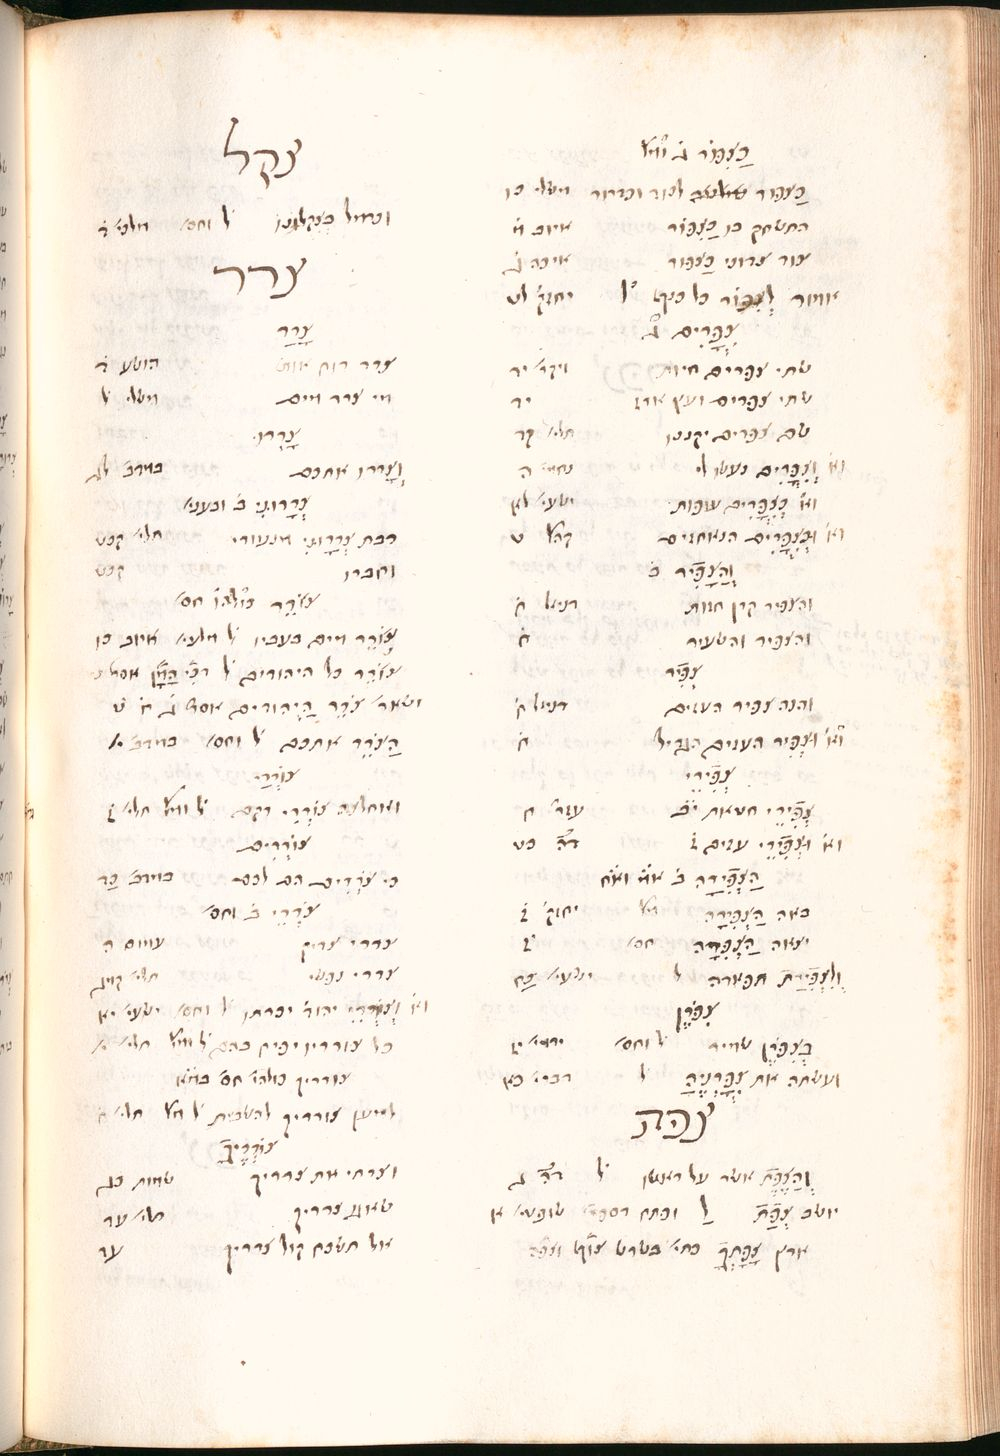 כַּצִּפּוֹר ג̇
כַּצפור לנוד וכדרור משלי כו
התשחק בו כַּצִפּוֹר איוב
צוד צדוני כַּצפור איכה ג̇
לְצִפּוֹר כל כנף ל̇ יחזק׳ לט
צִפֳּרִים
שתי צפרים חיות ויקר׳ יד
שתי צפרים ועץ ארז יד
שם צפרים יקננו תלי׳ קד
וא׳ וְצִפֳּרִים נעשו לי נחמי׳ ה
וא׳ כְּצִפֳּרִים עפות ישעי׳ לא
וא׳ וְכַצִּפֳּרִים הנאחזים קהל׳ ט
וְהַצָּפִיר ב̇
והצפיר קרן חזות דניאל ח̇
והצפיר והשעיר ח̇
צְפִיר
והנה צפיר העזים דניאל ח̇
וא׳ וּצְפִיר העזים הגדיל ח̇
צְפִירֵי
צְפִירֵי חטאת עזר׳ ח
וא׳ וּצְפִירֵי עזים ז̇ דה̇ כט
הַצְּפִירָה ב̇
באה הַצְּפִירָה מל׳ יחזק׳ ז̇
יצאה הַצְּפִרָה חס׳ ז̇
וְלִצְפִירַת תפארה ל̇ ישעי׳ כח
צִפֹּרֶן
בְּצִפֹּרֶן שמיר ל̇ וחס׳ ירמי׳ יז
ועשתה את צִפָּרְנֶיהָ ל̇ דברי׳ כא
צפת
וְהַצֶּפֶת אשר על ראשו ל̇ דה̇ ג
יושב צְפַת ל̇ שופטי׳ א
ארץ צָפָתְךָ
צקל
וכרמל בְּצִקְלֹנוֹ ל̇ וחס׳ מלכי׳ ד̇
צרר
צָרַר
צרר רוח אותה הושע ד̇
מי צרר מים משלי ל̇
צָרְרוּ
וְצָרְרוּ אתכם במדב׳ לג
צְרָרוּנִי ב̇ ובעני׳
רבת צְרָרוּנִי מנעורי תלי׳ קכט
וחברו קכט
צוֹרֵר חס׳
צֹרֵר מים בעביו ל̇ מלעי׳ איוב כו
צוֹרֵר כל היהודים ל̇ אסת׳
ושאר׳ צֹרֵר הַיהודים אסת׳ ג̇ ח̇ ט̇
הַצֹּרֵר אתכם ל̇ וחס׳ במדב׳ י
צוֹרְרִי
ואחלצה צוֹרְרִי ריקם ל̇ ומל׳ תלי׳ ז̇
צוֹרְרִים
כי צֹרְרִים הם לכם במדב׳ כה
צֹרְרֵי ב̇ וחס׳
צררי צדיק עמוס ה
צררי נפשי תלי׳
וא׳ וְצֹרְרֵי יהוד׳ יכרתו ל̇ וחס׳ ישעי׳ יא
כל צורריו יפיח בהם ל̇ ומל׳ תלי׳ י
צורריך כולהו חס׳
למען צורריך להשבית ל̇ מל׳ תלי׳ ח
צוֹרְרֶיךָ
וצרתי את צרריך שמות כג
שאגו צרריך תלי׳ עד
אל תשכח קול צרריך עד